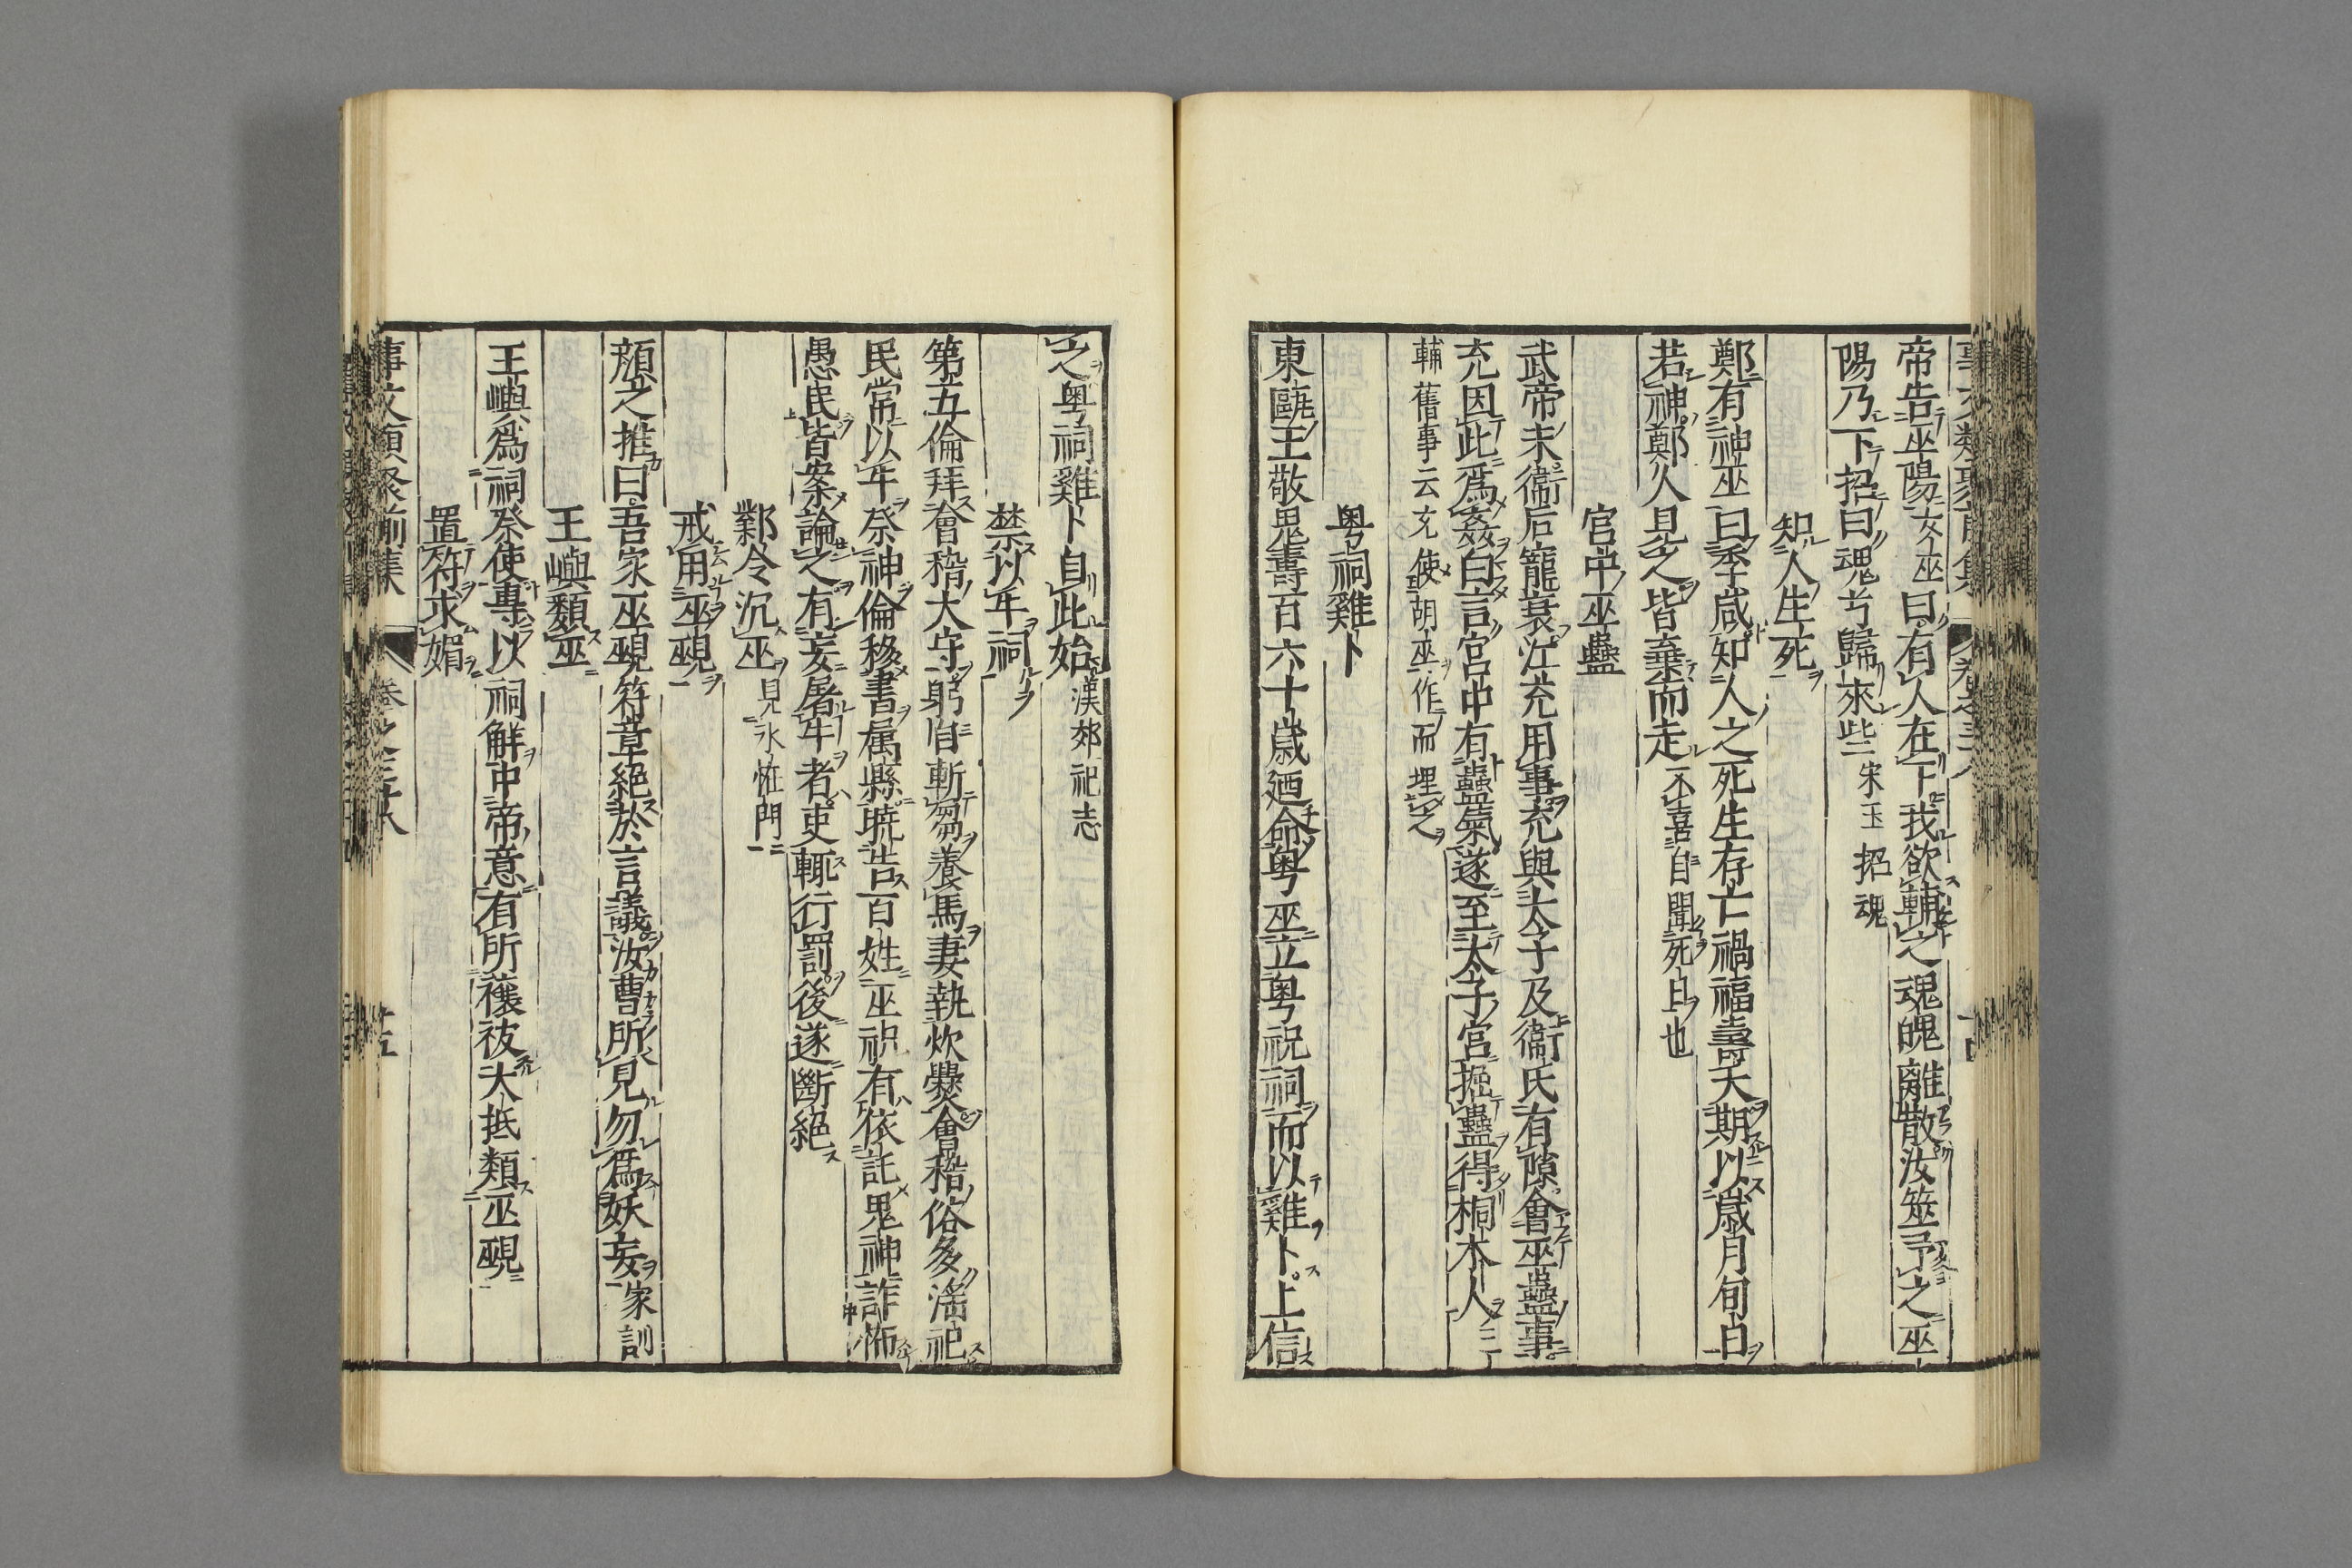 帝告巫陽女巫曰有人在下我欲輔之魂魄離散汝筮予之巫
陽乃下招曰魂兮歸來些宋玉招魂
知人生死
鄭有神巫曰季咸知人之死生存亡禍福壽夭期以歳月旬日
若神鄭人見之皆棄而走不喜自聞死日也
宮中巫蠱
武帝末衞后寵衰江充用事充與太子及衞氏有隙會巫蠱事
充因此爲姦白言宮中有蠱氣遂至太子宮掘蠱得桐木人三
輔舊事云充使胡巫作而埋之
粤祠雞卜
東甌王敬鬼壽百六十歳廼命粤巫立粤祝祠而以雞卜上信
之粤祠雞卜自此始漢郊祀志
禁以牛祠
第五倫拜會稽太守躬自斬芻養馬妻執炊爨會稽俗多淫祀
民常以牛祭神倫移書属縣暁告百姓巫祝有依託鬼神詐怖
愚民皆案論之有妄屠牛者吏輒行罰後遂斷絕
鄴令沉巫見水恠門
戒用巫覡
顏之推曰吾家巫覡符章絕於言議汝曹所見勿爲妖妄家訓
王嶼類巫
王嶼爲祠祭使專以祠解中帝意有所禳祓大抵類巫覡
置符求媚
事文類聚前集 卷之三十八 十五